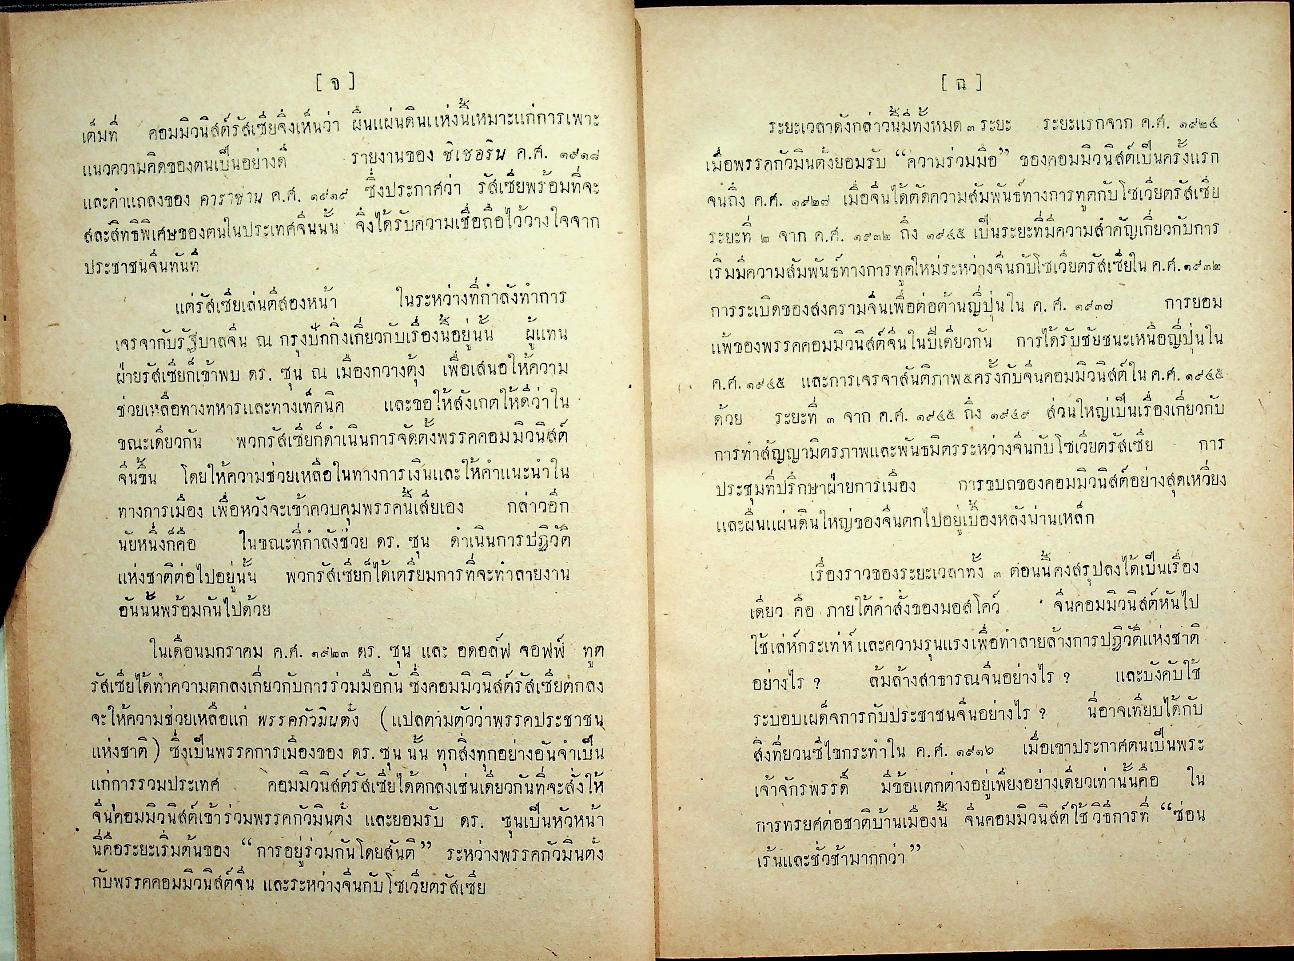 [ จ ]
เต็มที่ คอมมิวนิสต์รัสเซียจึงเห็นว่า ผืนแผ่นดินแห่งนี้เหมาะแก่การเพาะ
แนวความคิดของตนเป็นอย่างดี รายงานของ ชิเชอริน ค.ศ. ๑๙๑๘
และคำแถลงของ คาราฮาน ค.ศ. ๑๙๑๙ ซึ่งประกาศว่า รัสเซียพร้อมที่จะ
สละสิทธิพิเศษของตนในประเทศจีนนั้น จึงได้รับความเชื่อถือไว้วางใจจาก
ประชาชนจีนทันที
แต่รัสเซียเล่นตีสองหน้า ในระหว่างที่กำลังทำการ
เจรจากับรัฐบาลจีน ณ กรุงปักกิ่งเกี่ยวกับเรื่องนี้อยู่นั้น ผู้แทน
ฝ่ายรัสเซียก็เข้าพบ ดร. ซุน ณ เมืองกวางตุ้ง เพื่อเสนอให้ความ
ช่วยเหลือทางทหารและทางเท็คนิค และขอให้สังเกตให้ดีว่าใน
ขณะเดียวกัน พวกรัสเซียก็ดำเนินการจัดตั้งพรรคคอมมิวนิสต์
จีนขึ้น โดยให้ความช่วยเหลือในทางการเงินและให้คำแนะนำใน
ทางการเมือง เพื่อหวังจะเข้าควบคุมพรรคนี้เสียเอง กล่าวอีก
นัยหนึ่งก็คือ ในขณะที่กำลังช่วย ดร. ซุน ดำเนินการปฏิวัติ
แห่งชาติต่อไปอยู่นั้น พวกรัสเซียก็ได้เตรียมการที่จะทำลายงาน
อันนั้นพร้อมกันไปด้วย
ในเดือนมกราคม ค.ศ. ๑๙๒๓ ดร. ซุน และ อดอล์ฟ จอฟฟ์ ทูต
รัสเซียได้ทำความตกลงเกี่ยวกับการร่วมมือกัน ซึ่งคอมมิวนิสต์รัสเซียตกลง
จะให้ความช่วยเหลือแก่ พรรคกัวมินตั๋ง (แปลตามตัวว่าพรรคประชาชน
แห่งชาติ) ซึ่งเป็นพรรคการเมืองของ ดร. ซุน นั้น ทุกสิ่งทุกอย่างอันจำเป็น
แก่การรวมประเทศ คอมมิวนิสต์รัสเซียได้ตกลงเช่นเดียวกันที่จะสั่งให้
จีนคอมมิวนิสต์เข้าร่วมพรรคกัวมินตั๋ง และยอมรับ ดร. ซุนเป็นหัวหน้า
นี่คือระยะเริ่มต้นของ “การอยู่ร่วมกันโดยสันติ” ระหว่างพรรคกัวมินตั๋ง
กับพรรคคอมมิวนิสต์จีน และระหว่างจีนกับโซเวียตรัสเซีย
[ ฉ ]
ระยะเวลาดังกล่าวนี้มีทั้งหมด ๓ ระยะ ระยะแรกจาก ค.ศ. ๑๙๒๔
เมื่อพรรคกัวมินตั๋งยอมรับ “ความร่วมมือ” ของคอมมิวนิสต์เป็นครั้งแรก
จนถึง ค.ศ. ๑๙๒๗ เมื่อจีนได้ตัดความสัมพันธ์ทางการทูตกับโซเวียตรัสเซีย
ระยะที่ ๒ จาก ค.ศ. ๑๙๓๒ ถึง ๑๙๔๕ เป็นระยะที่มีความสำคัญเกี่ยวกับการ
เริ่มมีความสัมพันธ์ทางการทูตใหม่ระหว่างจีนกับโซเวียตรัสเซียใน ค.ศ. ๑๙๓๒
การระเบิดของสงครามจีนเพื่อต่อต้านญี่ปุ่นใน ค. ศ. ๑๙๓๗ การยอม
แพ้ของพรรคคอมมิวนิสต์จีนในปีเดียวกัน การได้รับชัยชนะเหนือญี่ปุ่นใน
ค.ศ. ๑๙๔๕ และการเจรจาสันติภาพ๕ครั้งกับจีนคอมมิวนิสต์ใน ค.ศ. ๑๙๔๕
ด้วย ระยะที่ ๓ จาก ค.ศ. ๑๙๔๕ ถึง ๑๙๔๙ ส่วนใหญ่เป็นเรื่องเกี่ยวกับ
การทำสัญญามิตรภาพและพันธมิตรระหว่างจีนกับโซเวียตรัสเซีย การ
ประชุมที่ปรึกษาฝ่ายการเมือง การขบถของคอมมิวนิสต์อย่างสุดเหวี่ยง
และผืนแผ่นดินใหญ่ของจีนตกไปอยู่เบื้องหลังม่านเหล็ก
เรื่องราวของระยะเวลาทั้ง ๓ ตอนนี้คงสรุปลงได้เป็นเรื่อง
เดียว คือ ภายใต้คำสั่งของมอสโคว์ จีนคอมมิวนิสต์หันไป
ใช้เล่ห์กระเท่ห์และความรุนแรงเพื่อทำลายล้างการปฏิวัติแห่งชาติ
อย่างไร ? ล้มล้างสาธารณจีนอย่างไร ? และบังคับใช้
ระบอบเผด็จการกับประชาชนจีนอย่างไร ? นี่อาจเทียบได้กับ
สิ่งที่ยวนซีไขกระทำใน ค.ศ. ๑๙๑๖ เมื่อเขาประกาศตนเป็นพระ
เจ้าจักรพรรดิ์ มีข้อแตกต่างอยู่เพียงอย่างเดียวเท่านั้นคือ ใน
การทรยศต่อชาติบ้านเมืองนี้ จีนคอมมิวนิสต์ใช้วิธีการที่ “ซ่อน
เร้นและชั่วช้ามากกว่า”